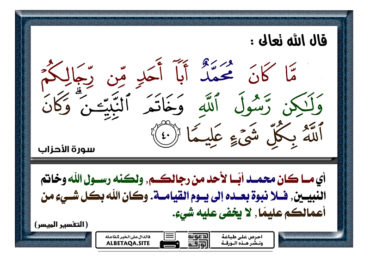 قال الله تعالى :
مَّا كَانَ مُحَمَّدٌ أَبَآ أَحَدٍ مِّن رِّجَالِكُمْ
وَلَٰكِن رَّسُولَ ٱللَّهِ وَخَاتَمَ ٱلنَّبِيِّـۧنَ ۗ وَكَانَ
ٱللَّهُ بِكُلِّ شَىْءٍ عَلِيمًا ٤٠
سورة الأحزاب
أي ما كان محمد أبًا لأحد من رجالكم, ولكنه رسول الله وخاتم
النبيين, فلا نبوة بعده إلى يوم القيامة. وكان الله بكل شيء من
أعمالكم عليمًا, لا يخفى عليه شيء.
(التفسير الميسر)
احرص على طباعة
ونشر هذه الورقة
ALBETAQA.SITE